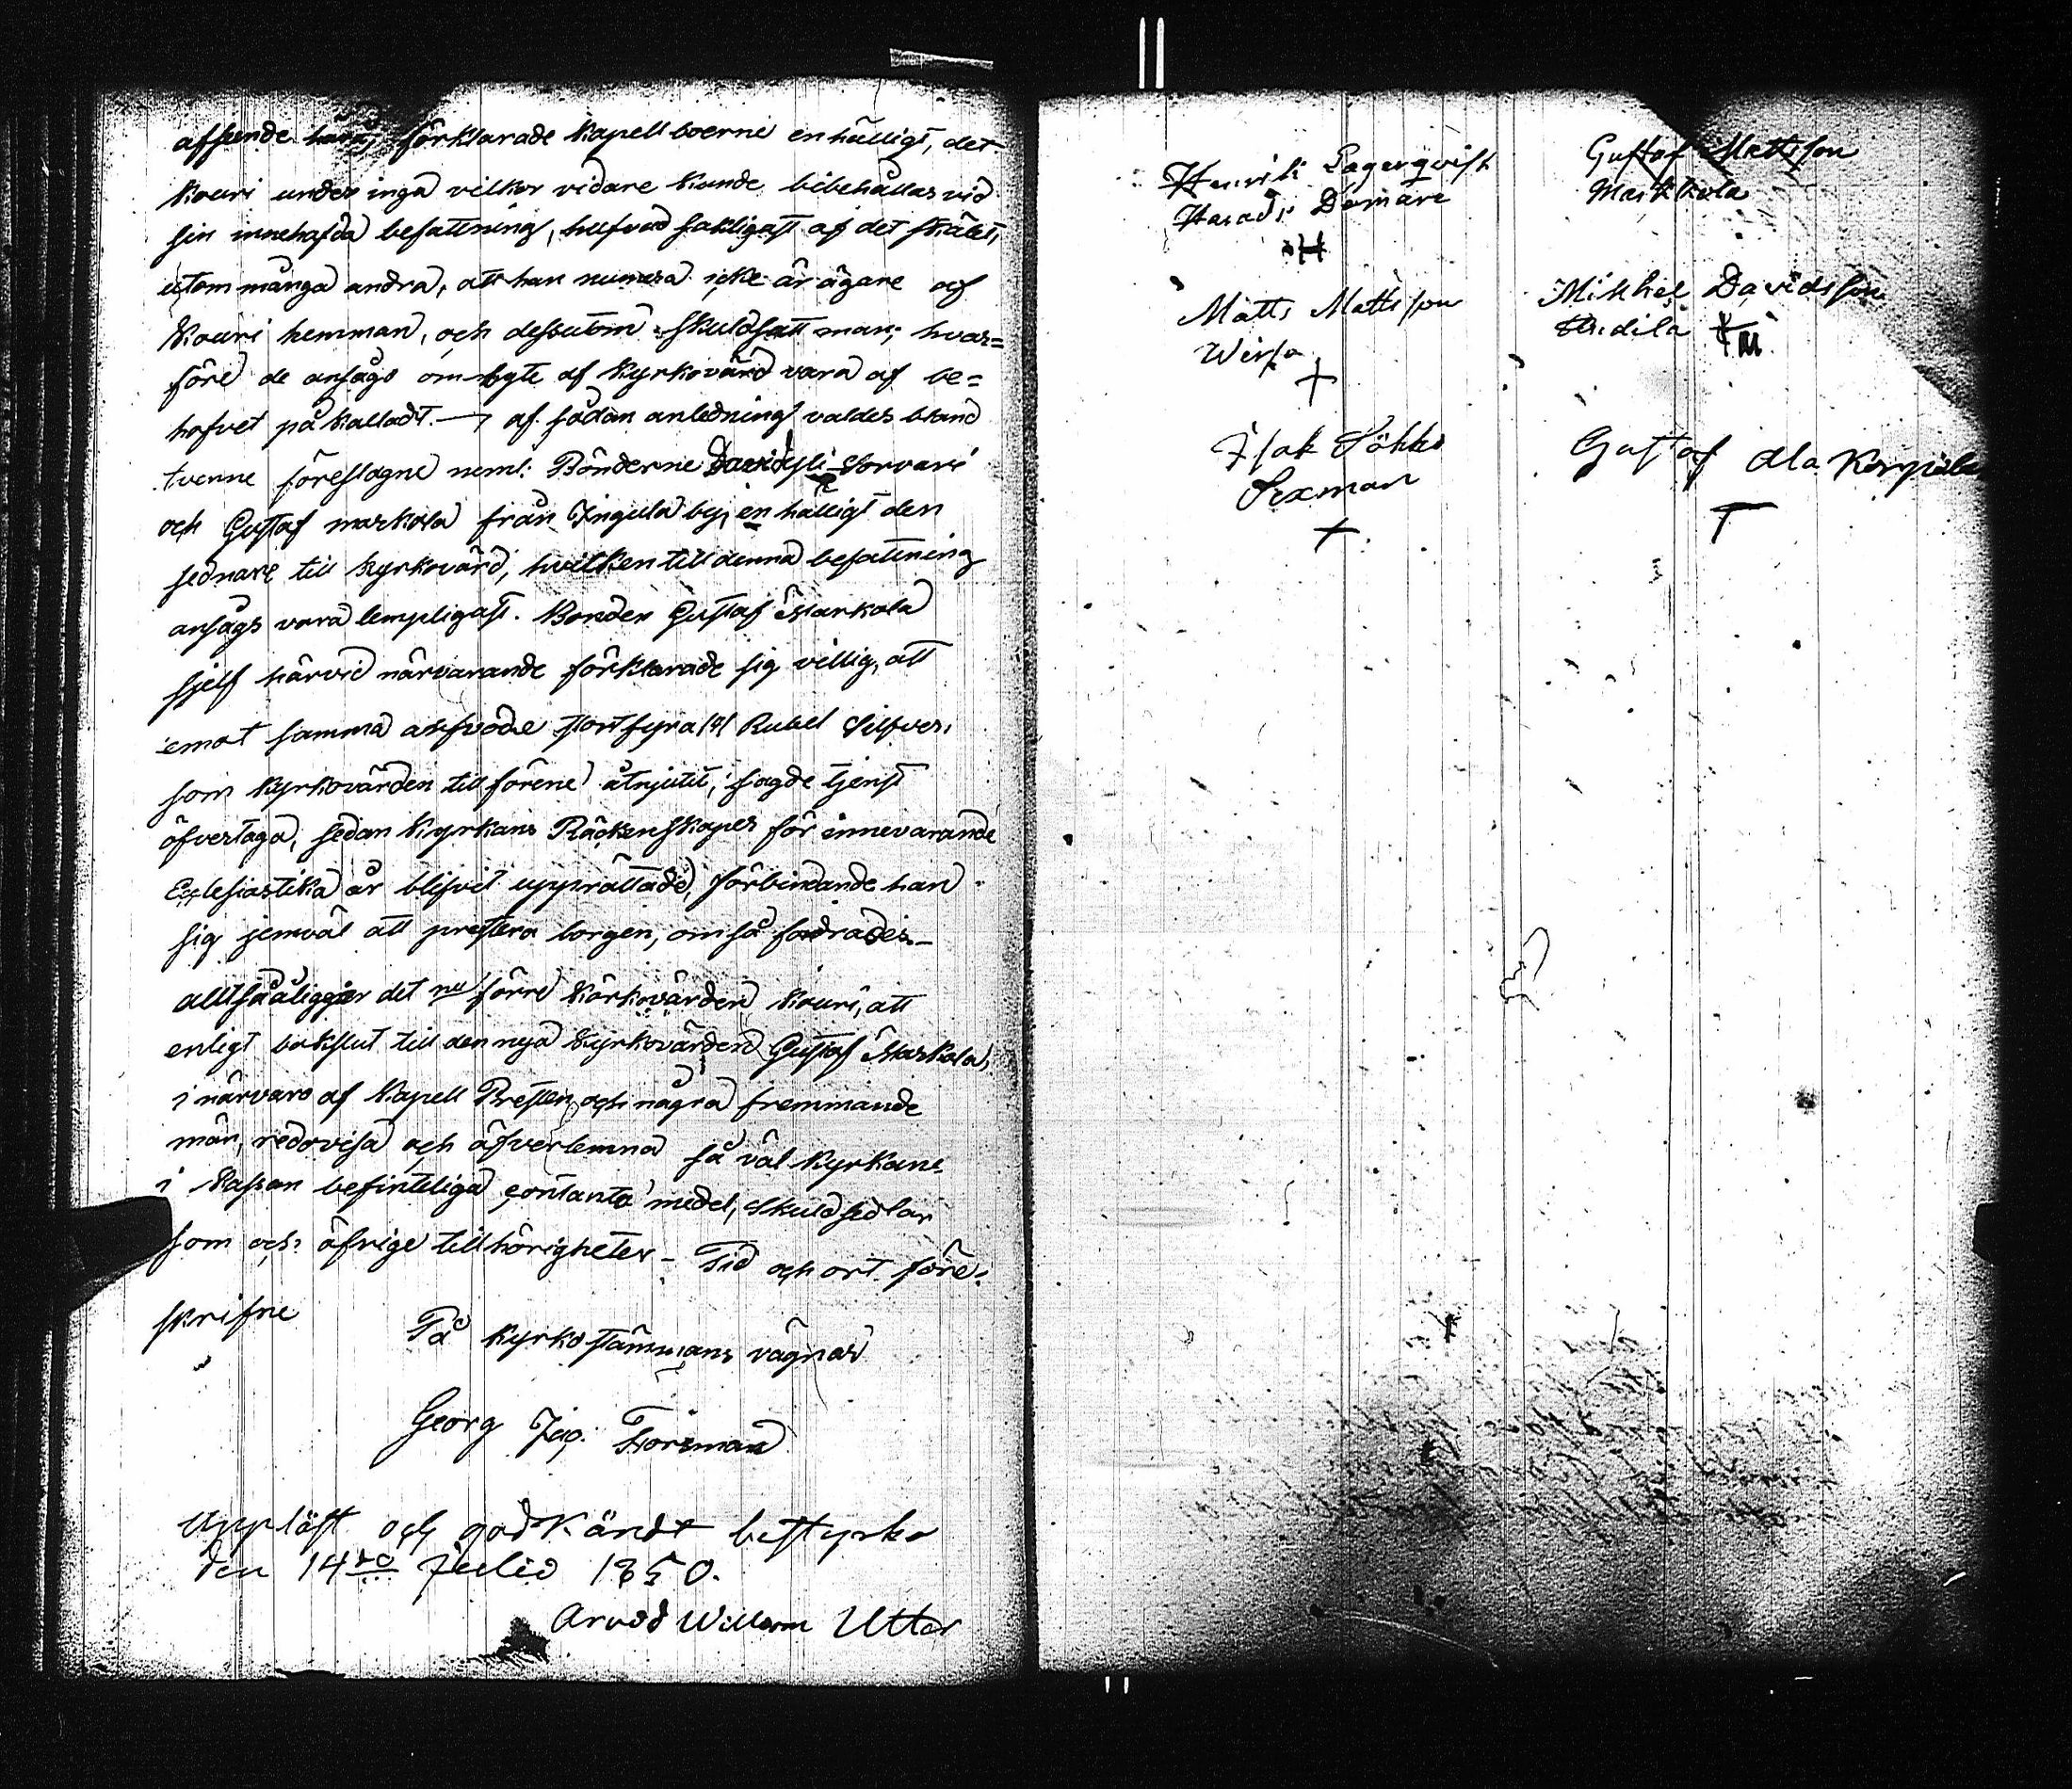 afseende härå, förklarade Kapellboerne enhälligt, det
Kouri under inga vilkor vidare kunde bibehållas vid
sin innehafda befattning, hufvudsakligast af det skälet,
utom många andra, att han numera icke är ägare af
Kouri hemman, och dessutom skuldsatt man; hvar=
före de ansågo ombyte af Kyrkovärd vara af be=
hofvet påkalladt. — af sådan anledning valdes bland
tvenne föreslagne neml: Bönderne Sorvari
och Gustaf Markola från Ingula by, enhälligt den
sednare till Kyrkovärd, hvilken till denna befattning
ansågs vara lempligast. Bonden Gustaf Markola
sjelf härvid närvarande förklarade sig villig, att
emot samma arfvode stort fyra /4/ Rubel Silfver,
som Kyrkovärden till förene åtnjutit, sagde tjenst
öfvertaga, sedan Kyrkans Räckenskaper för innevarande
Ecclesiastika år blifvit upprättade, förbindande han
sig jemväl att prestera borgen, om så fodrades.—
alltså åligger det nu förre Körkovärden Kouri, att
enligt bokslut till den nya Kyrkovärden Gustaf Markola,
i närvaro af Kapell Presten och några fremmande
män, redovisa och öfverlemna så väl Kyrkans
i Kassan befinteliga contanta medel, skuldsedlar
som och öfrige tillhörigheter — Tid och ort före=
skrifne
På Kyrkostämmans vägnar
Georg Jac. Forsman
Uppläst och godkändt bestyrka
den 14de Julii 1850.
Arvid Willem Utter
Henrik Lagerqvist
Härads Domare
H
Matts Mattsson
Wirta
+
Isak Sökkö
Sexman
+
Gustaf Mattsson
Markkola
Mikhel Davidsson
Gustaf Ala Korpela
T